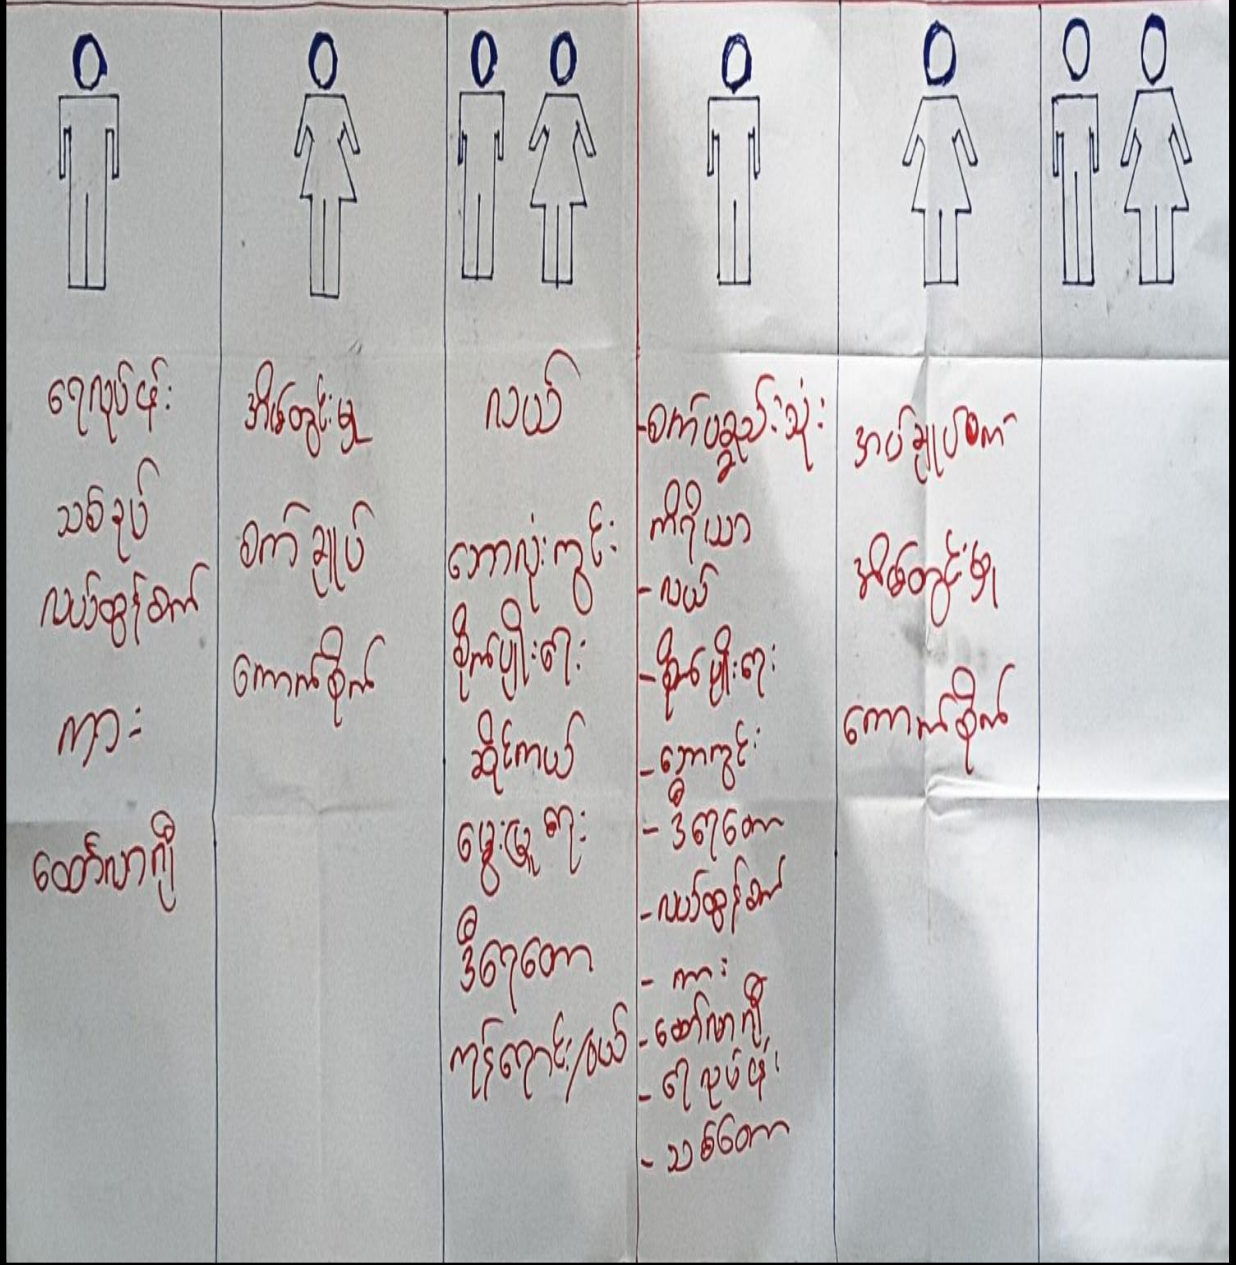 ရေလုပ်ငန်း
သစ်ခုပ်
လယ်ထွန်စက်
ကား
ထော်လာဂျီ
အိမ်တွင်းမှု
စက်ချုပ်
ကောက်စိုက်
လယ်
ဘောလုံးကွင်း
စိုက်ပျိုးရေး
ဆိုင်ကယ်
မွေးမြူရေး
ဒီရေတော
ကုန်ရောင်း/ဝယ်
-စက်ပစ္စည်းသုံး
ကိရိယာ
-လယ်
-စိုက်ပျိုးရေး
-ဘောကွင်း
-ဒီရေတော
-လယ်ထွန်စက်
-ကား
-ထော်လာဂျီ
-ရေလုပ်ငန်း
-သစ်တော
အပ်ချုပ်စက်
အိမ်တွင်းမှု
ကောက်စိုက်